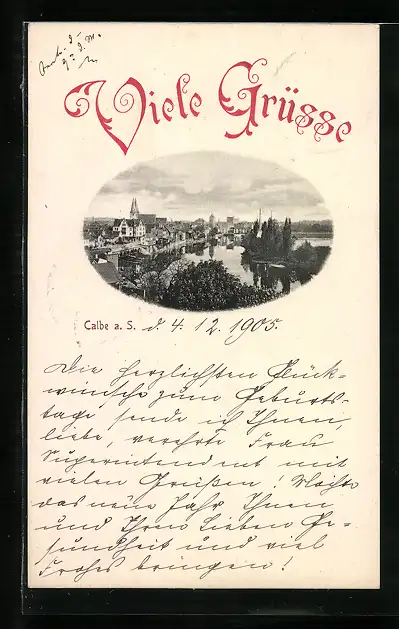 Viele Grüsse
Calbe a. S. d. 4. 12. 1905.
Die herzlichsten Glück-
wünsche zum Geburts-
tage sende ich Ihnen,
liebe, verehrte Frau
Superintendent mit
vielen Grüßen! Möchte
das neue Jahr Ihnen
und Ihren Lieben Ge-
sundheit und viel
Frohes bringen!